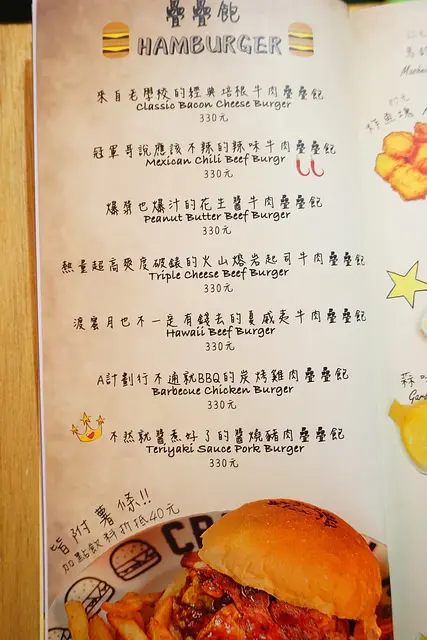 疊疊飽
HAMBURGER
來自老學校的經典培根牛肉疊疊飽
Classic Bacon Cheese Burger
330元
冠軍哥說應該不辣的辣味牛肉疊疊飽
Mexican Chili Beef Burgr
330元
爆漿也爆汁的花生醬牛肉疊疊飽
Peanut Butter Beef Burger
330元
熱量超高爽度破錶的火山熔岩起司牛肉疊疊飽
Triple Cheese Beef Burger
330元
渡蜜月也不一定有錢去的夏威夷牛肉疊疊飽
Hawaii Beef Burger
330元
A計劃行不通就BBQ的炭烤雞肉疊疊飽
Barbecue Chicken Burger
330元
不然就醬煮好了的醬燒豬肉疊疊飽
Teriyaki Sauce Pork Burger
330元
皆附薯條!!
加點飲料折抵40元